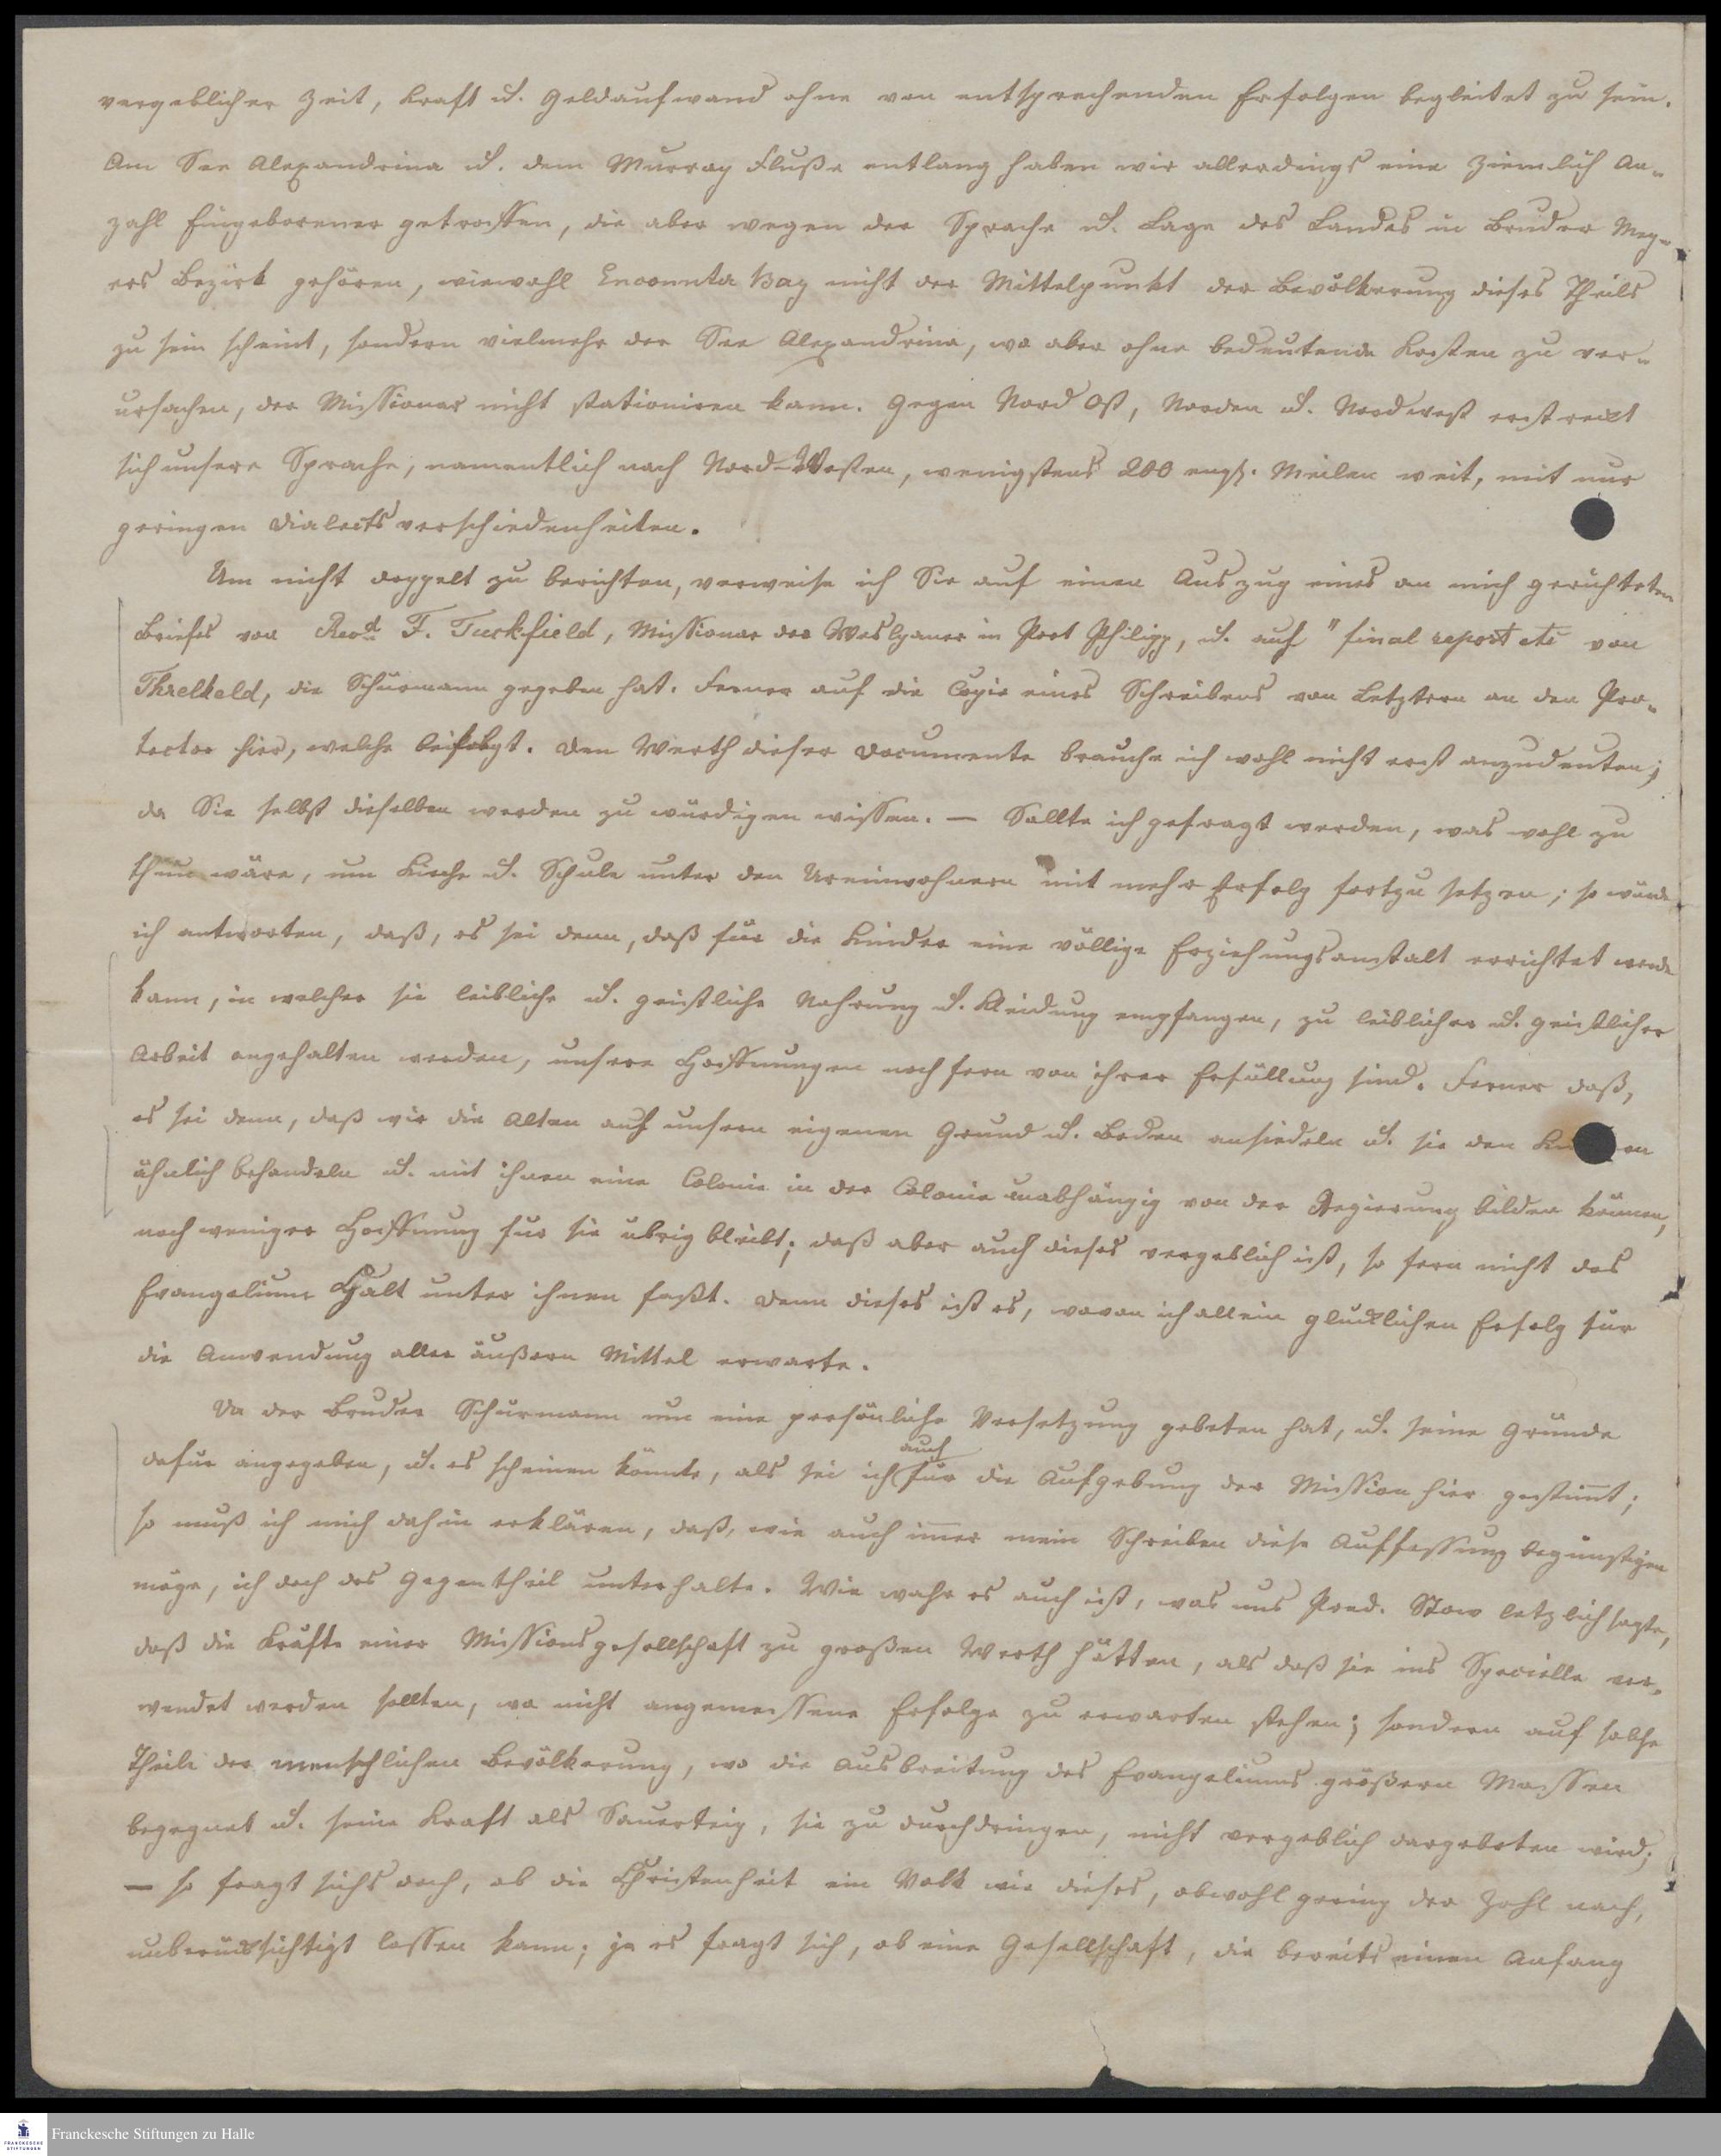 vergeblicher Zeit, Kraft u. Geldaufwand ohne von entsprechenden Erfolgen begleitet zu sein.
Am See Alexandrina u. dem Murray Fluße entlang haben wir allerdings eine ziemlich An-
zahl Eingeborener getroffen, die aber wegen der Sprache u. Lage des Landes in Bruder Mey-
ers Bezirk gehören, wiewohl Encounter Bay nicht der Mittelpunkt der Bevölkerung dieses Theils
zu sein scheint, sondern vielmehr der See Alexandrina, wo aber ohne bedeutende Kosten zu ver-
ursachen, der Missionar nicht stationiren kann. Gegen Nord Ost, Norden u. Nordwest erstreckt
sich unsere Sprache, namentlich nach Nord-Westen, wenigstens 200 engl. Meilen weit, mit nur
geringen Dialectsverschiedenheiten.
Um nicht doppelt zu berichten, verweise ich Sie auf einen Auszug eines an mich gerichteten
Briefes von Revd F. Tuckfield, Missionar der Weslyaner in Port Philipp, u. auf "final report etc von
Threlkeld, die Schürmann gegeben hat. Ferner auf die Copie eines Schreibens von Letztern an den Pro-
tector hier, welche beifolgt. Den Werth dieser Documente brauche ich wohl nicht erst anzudeuten;
da Sie selbst dieselben werden zu würdigen wissen. — Sollte ich gefragt werden, was wohl zu
thun wäre, um Kirche u. Schule unter den Ureinwohnern mit mehr Erfolg fortzusetzen; so würde
ich antworten, daß, es sei denn, daß für die Kinder eine völlige Erziehungsanstalt errichtet werde
kann, in welcher sie leibliche u. geistliche Nahrung u. Kleidung empfangen, zu leiblicher u. geistlicher
Arbeit angehalten werden, unsere Hoffnungen noch fern von ihrer Erfüllung sind. Ferner daß,
es sei denn, daß wir die Alten auf unsern eigenen Grund u. Boden ansiedeln u. sie den
ähnlich behandeln u. mit ihnen eine Colonie in der Colonie unabhängig von der Regierung bilden können,
noch weniger Hoffnung für sie übrig bleibt; daß aber auch dieses vergeblich ist, so fern nicht das
Evangelium Halt unter ihnen faßt. Denn dieses ist es, wovon ich allein glücklichen Erfolg für
die Anwendung aller äußern Mittel erwarte.
Da der Bruder Schürmann um eine persönliche Versetzung gebeten hat, u. seine Gründe
dafür angegeben, u. es scheinen könnte, als sei ich auch für die Aufgebung der Mission hier gestimmt;
so muß ich mich dahin erklären, daß, wie auch immer mein Schreiben diese Auffassung begünstigen
möge, ich doch das Gegentheil unterhalte. Wie wahr es auch ist, was uns Pred. Stow letzlich sagte,
daß die Kräfte einer Missionsgesellschaft zu großen Werth hätten, als daß sie ins Specielle ver-
wendet werden sollten, wo nicht angemessene Erfolge zu erwarten stehen; sondern auf solche
Theile der menschlichen Bevölkerung, wo die Ausbreitung des Evangeliums größern Massen
begegnet u. seine Kraft als Sauerteig, sie zu durchdringen, nicht vergeblich dargeboten wird;
— so fragt sichs doch, ob die Christenheit ein Volk wie dieses, obwohl gering der Zahl nach,
unberücksichtigt lassen kann; ja es fragt sich, ob eine Gesellschaft, die bereits einen Anfang
FRANCKESCHE STIFTUNGEN
Franckesche Stiftungen zu Halle